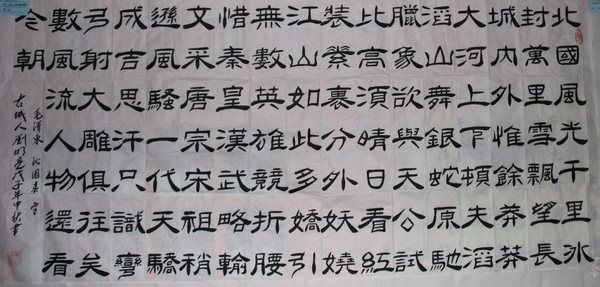 北國風光千里冰
封萬里雪飄望長
城内外惟餘莽莽
大河上下頓失滔
滔山舞銀蛇原馳
臘象欲與天公試
比高須晴日看紅
裝素裹分外妖嬈
江山如此多嬌引
無數英雄競折腰
惜秦皇漢武略輸
文采唐宗宋祖稍
遜風騷一代天驕
成吉思汗只識彎
弓射大雕俱往矣
數風流人物還看
今朝
毛澤東 沁園春 雪
古城人劉明戊子年中秋書